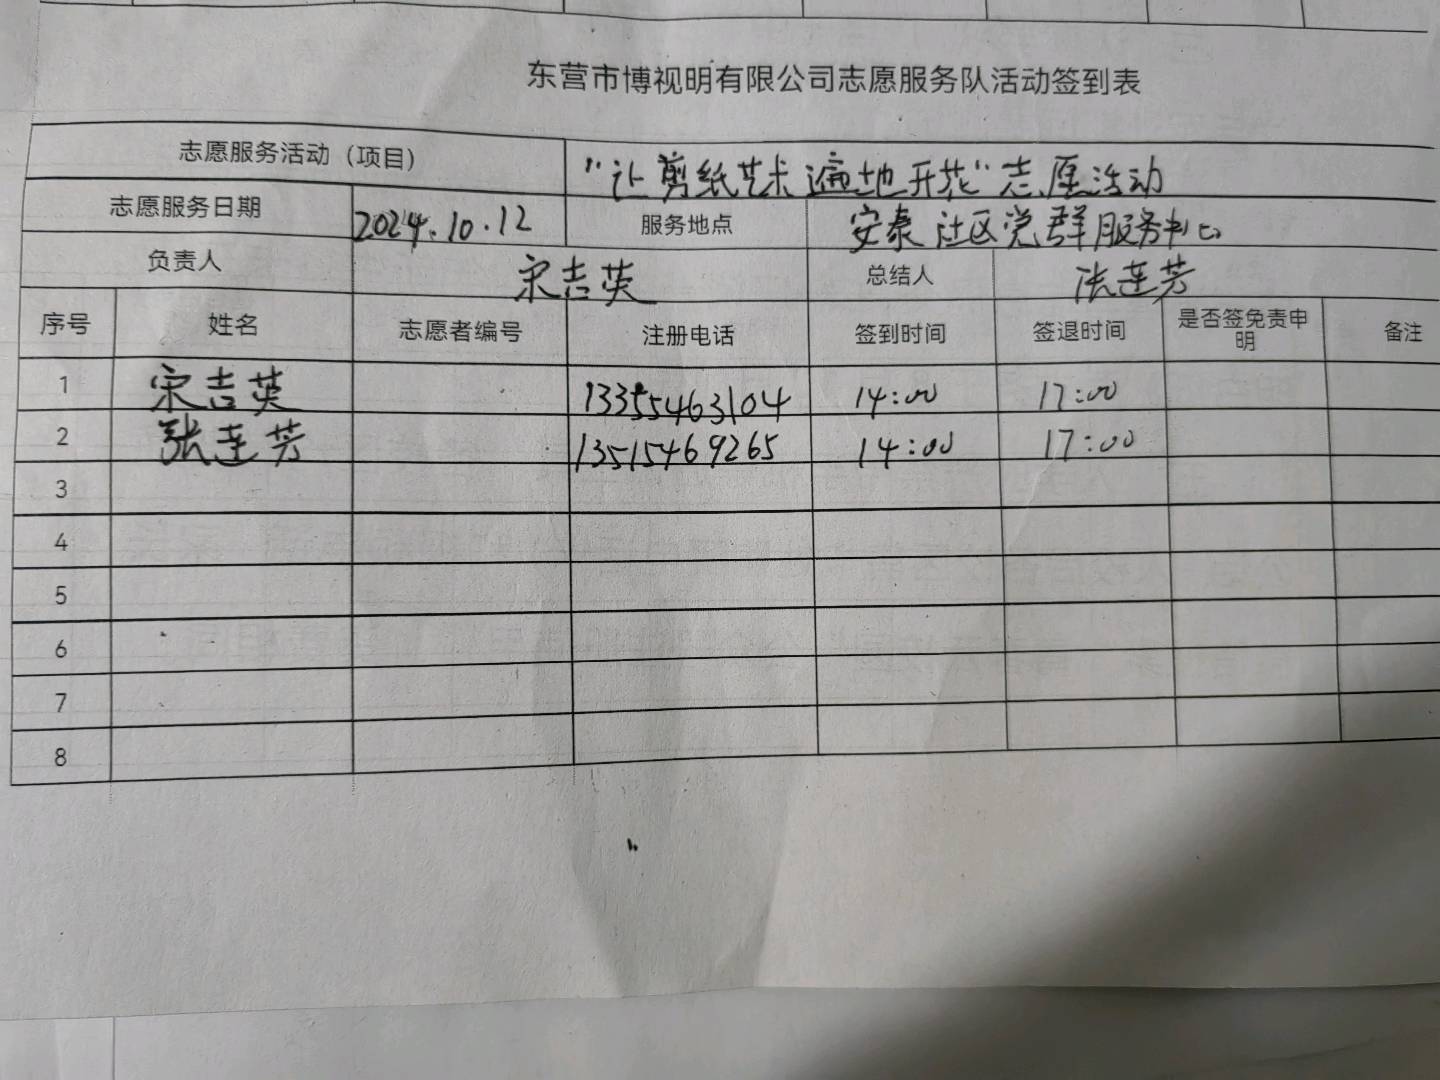 东营市博视明有限公司志愿服务队活动签到表
志愿服务活动（项目） “让剪纸艺术遍地开花”志愿活动
志愿服务日期 2024.10.12 服务地点 安泰社区党群服务中心
负责人 宋吉英 总结人 张莲芳
序号 姓名 志愿者编号 注册电话 签到时间 签退时间 是否签免责申明 备注
1 宋吉英 13355463104 14:00 17:00
2 张莲芳 13515469265 14:00 17:00
3
4
5
6
7
8